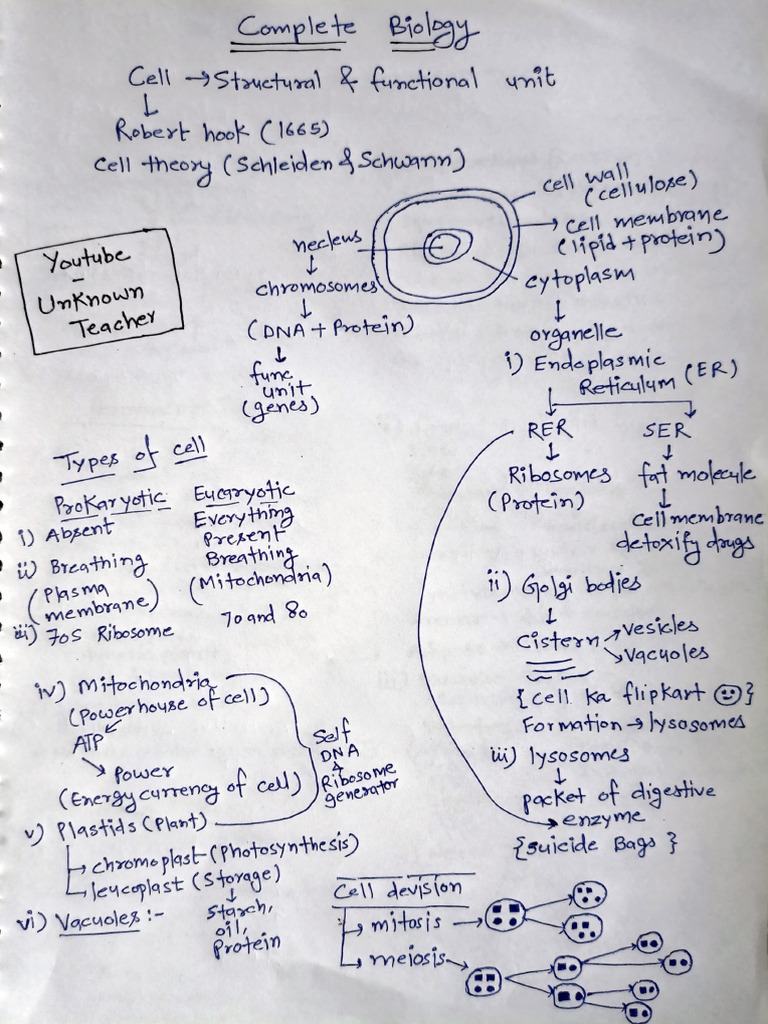 Complete Biology
Cell → Structural & functional unit
↓
Robert hook (1665)
Cell theory (Schleiden & Schwann)
cell wall
(cellulose)
→ cell membrane
(lipid + protein)
cytoplasm
↓
organelle
necleus
↓
chromosomes
↓
(DNA + Protein)
↓
func
unit
(genes)
Youtube
-
UnKnown
Teacher
i) Endoplasmic
Reticulum (ER)
RER
↓
Ribosomes
(Protein)
SER
↓
fat molecule
↓
cell membrane
detoxify drugs
Types of cell
Prokaryotic Eucaryotic
i) Absent
Everything
Present
ii) Breathing
(Plasma
membrane)
Breathing
(Mitochondria)
iii) 70S Ribosome
70 and 80
ii) Golgi bodies
↓
Cistern → vesicles
→ vacuoles
{cell ka flipkart 🙂}
Formation → lysosomes
iii) lysosomes
↓
packet of digestive
enzyme
{suicide Bags}
iv) Mitochondria
(Powerhouse of cell)
ATP
→ Power
(Energy currency of cell)
Self
DNA
&
Ribosome
generator
v) Plastids (Plant)
→ chromoplast (Photosynthesis)
→ leucoplast (Storage)
↓
Starch,
oil,
Protein
vi) Vacuoles :-
Cell devision
→ mitosis →
→ meiosis →